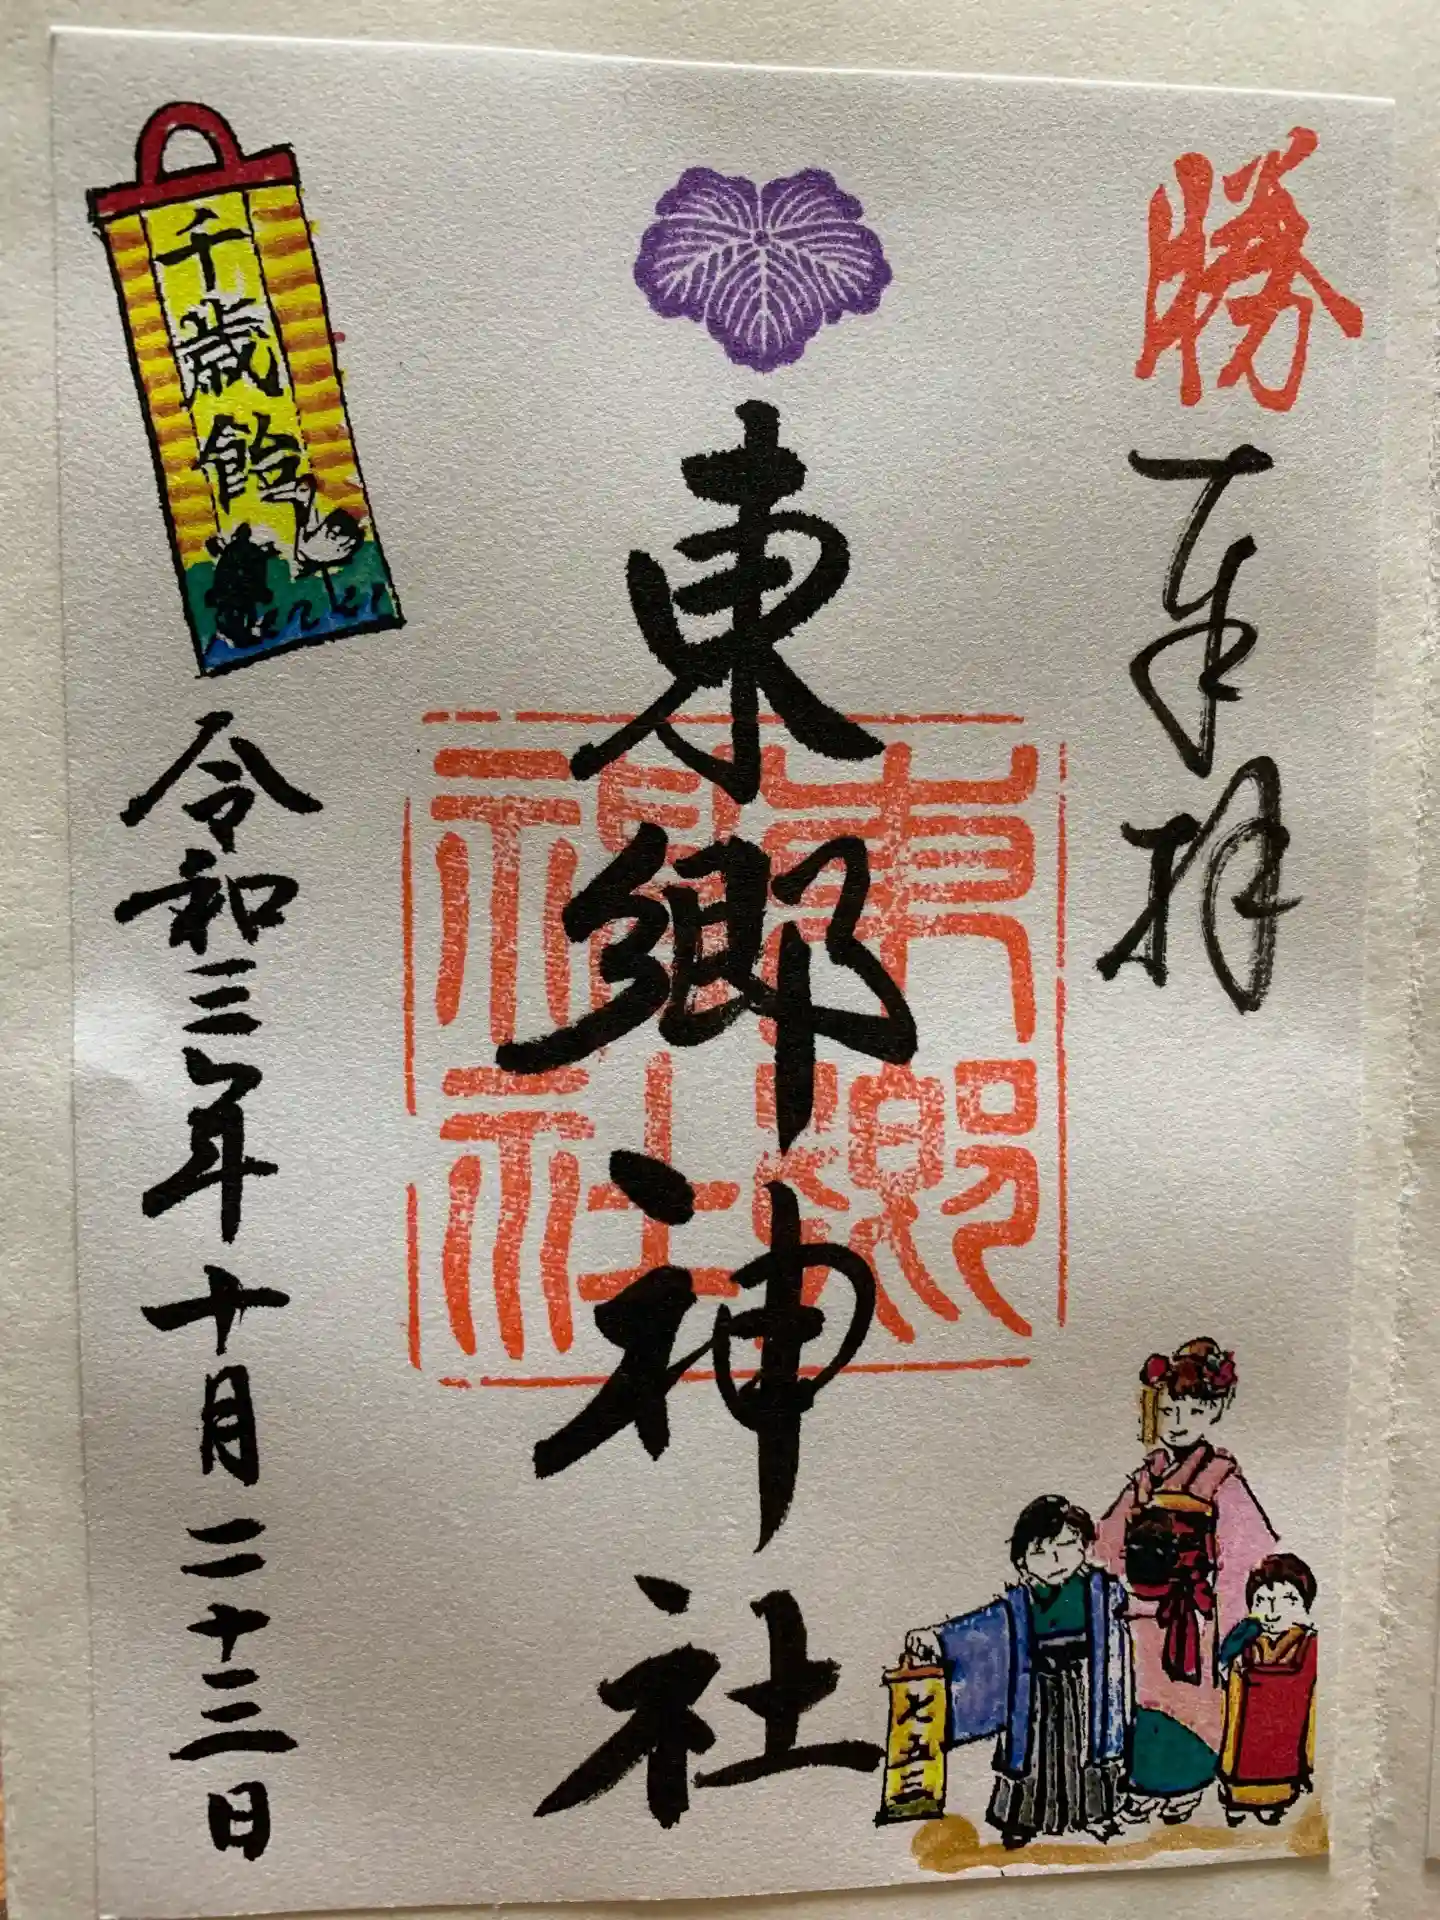 勝
奉拝
東郷神社
東郷神社
千歳飴
令和三年十月二十三日
七五三